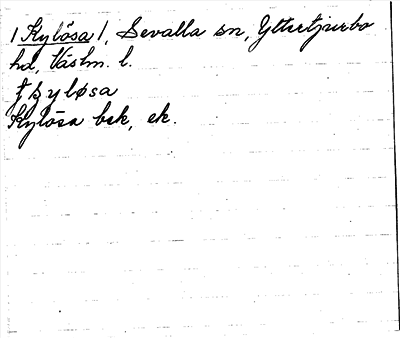 /Kylösa/, Sevalla sn, Yttertjurbo
hd, Västm. l.
Kylösa bsk, ek.